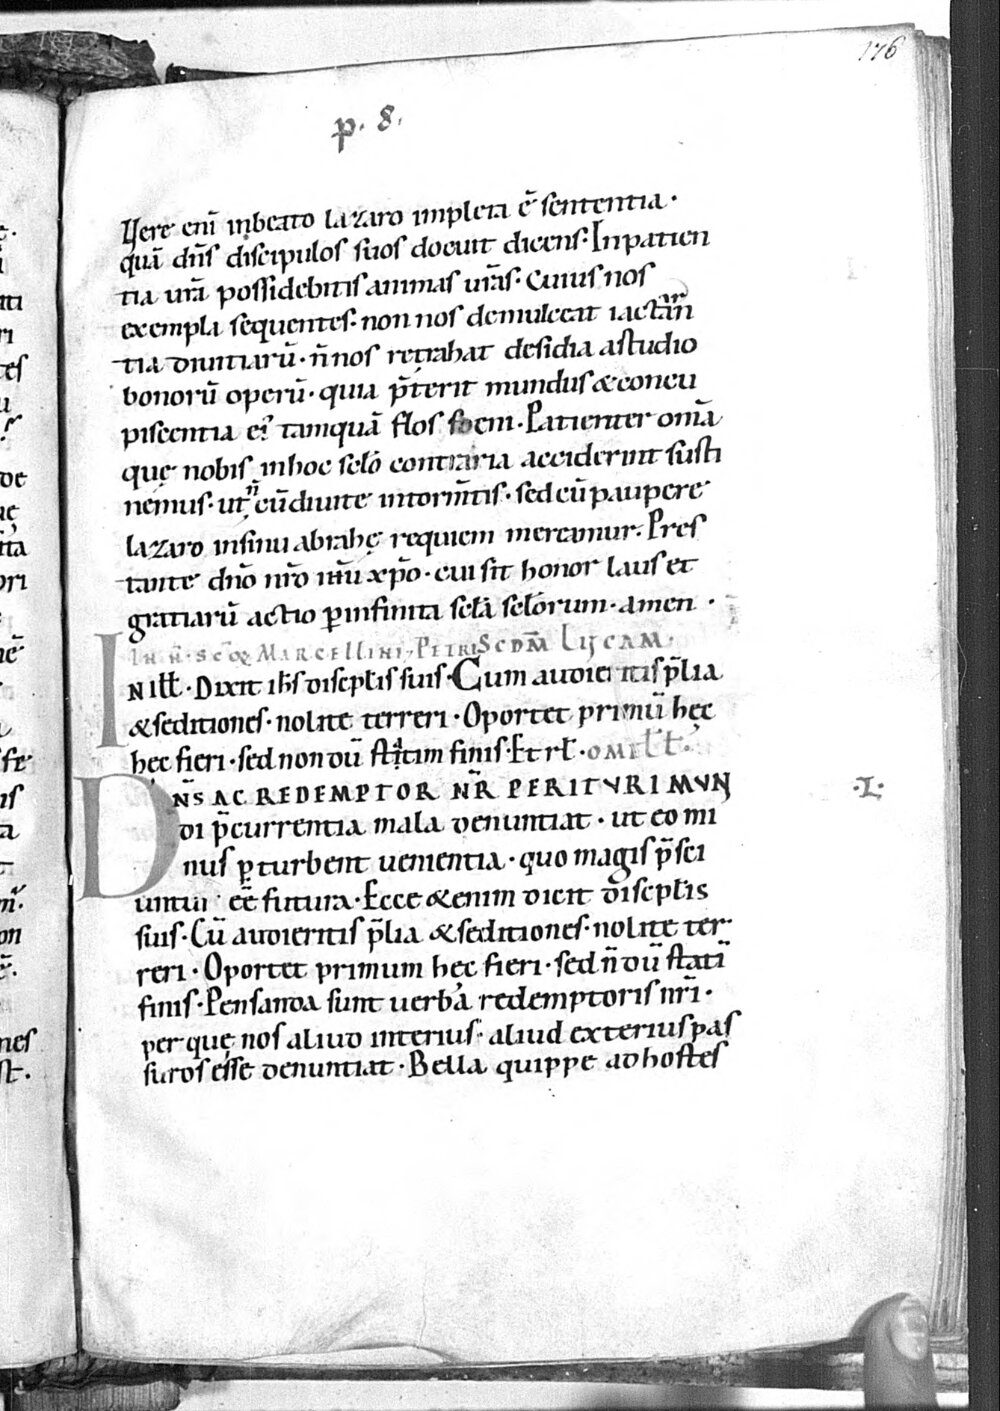 176
p. 8.
Vere enī inbeato lazaro impleta ē sententia·
quā dn̄s discipulos suos docuit dicens· Inpatien
tia urā possidebitis animas urās· Cuius nos
exempla sequentes· non nos demulceat iactan
tia diuitiarū· n̄ nos retrahat desidia astudio
bonorū operū· quia p̄terit mundus & concu
piscentia ei᾽ tamquā flos foeni· Patienter om̄a
quę nobis inhoc sclō contraria acciderint susti
nemus· ut n̄ cūdiuite intorm̄tis· sed cū paupere
lazaro insinu abrahę requiem mereamur. Pres
tante dn̄o nr̄o ih̄u xp̄o· cui sit honor laus et
gratiarū actio p infinita sclā sclōrum· amen·
In n̄· sc̄oꝝ Marcellini, Petri Scdm̄ Lucam.
In ill̄· Dixit ih̄s discipl̄is suis· Cum audieritis p̄lia
& seditiones· nolite terreri· Oportet primū hęc
hęc fieri· sed non dū statim finis· Et rl̄· omil̄·
Dn̄s ac redemptor nr̄ perituri mun
di p̄currentia mala denuntiat· ut eo mi
nus pturbent uenientia· quo magis p̄sci
untur eē futura· Ecce & enim dicit discipl̄is
suis· Cū audieritis p̄lia & seditiones· nolite ter
reri· Oportet primum hęc fieri· sed n̄ dū statī
finis· Pensanda sunt uerba redemptoris nr̄i·
per quę nos aliud interius· aliud exterius pas
suros esse denuntiat· Bella quippe ad hostes
·L·